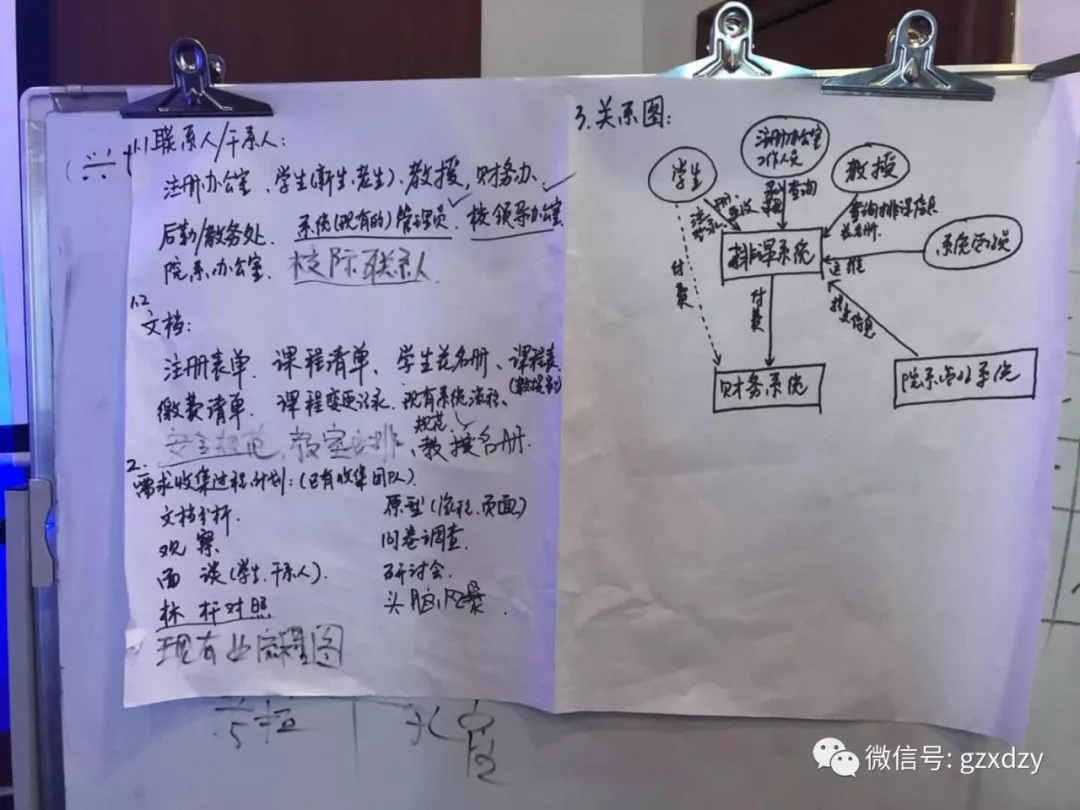 1.1 联系人/干系人:
注册办公室、学生(新生、老生)、教授,财务办、
后勤/教务处. 系统(现有的)管理员. 校领导办公室
院系办公室. 校际联系人
1.2
文档:
注册表单. 课程清单、学生花名册、课程表
(教授名)
缴费清单. 课程变更记录. 现有系统流程、
规范.
安全规范, 教室安排、教授名册.
2.
需求收集过程计划:(已有收集团队)
文档分析.
观 察
面 谈(学生、干系人).
标 杆对照
现有业务流程图
原型(流程、页面)
问卷调查.
研讨会.
头脑风暴.
3.关系图:
学生
注册办公室
工作人员
教授
查询
查询排课信息
花名册.
排课系统
运维
付费
付费
财务系统
微信号: gzxdzy